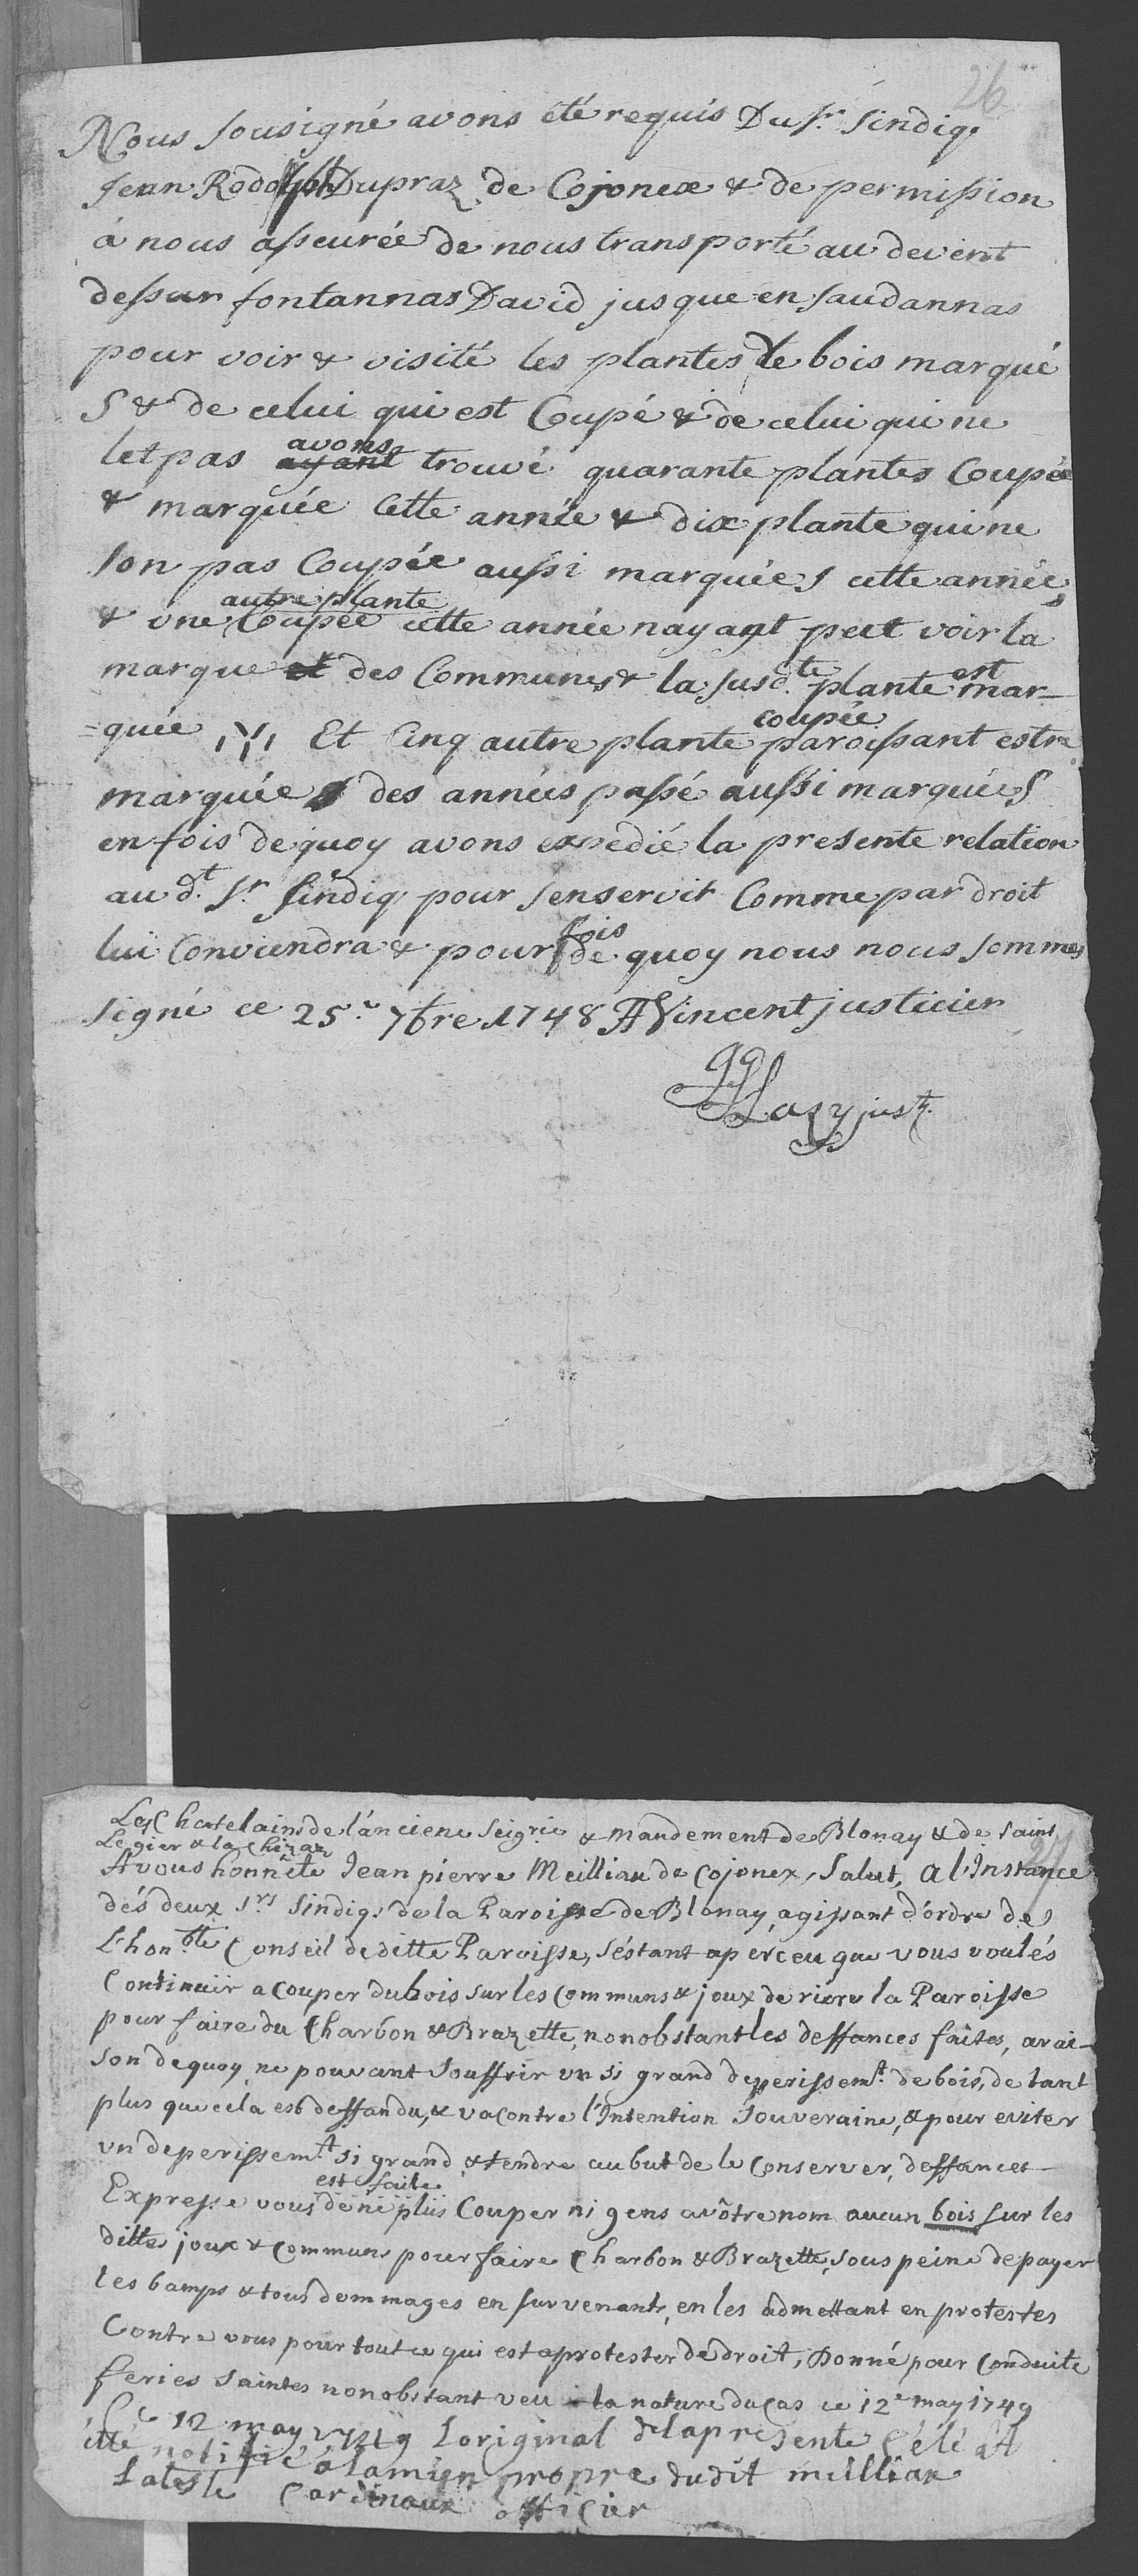 26
Nous sousigné avons été requis Du Sr. Sindiq
Jean Rodolph Dupraz de Cojonex & de permission
à nous asseurée de nous transporté au devent
dessur fontannas David jusque en saudannas
pour voir & visité les plantes de bois marqué
S & de celui qui est Coupé & de celui qui ne
let pas ayant avons trouvé quarante plantes Coupée
& marquée Cette année & dix plante qui ne
son pas Coupée aussi marquée S cette année,
& une autre plante Coupée cette année nayant peut voir la
marque et des Communes & la susd.te plante est mar-
=quée Et Cinq autre plante coupée paroissant estre
marquée des années passé aussi marquée S
en fois de quoy avons expedié la presente relation
au d.t Sr. Sindiq pour senservir Comme par droit
lui Conviendra & pour fois de quoy nous nous sommes
signé ce 25.e 7bre 1748 A Vincent justicier
Lasy just.
Les Chatelains de l'anciene Seigrie & Mandement de Blonay & de Saint
Legier & la Chizaz
A vous honnête Jean pierre Meilliau de Cojonex, Salut, a l'Instance
dés deux Srs Sindiqs de la Paroisse de Blonay, agissant d'ordre de
L'honble Conseil de ditte Paroisse, séstant aperceu que vous voulés
Continuir a couper du bois sur les Communs & joux de riere la Paroisse
pour faire du Charbon & Brazette, nonobstant les deffances faites, a rai-
son de quoy ne pouvant souffrir un si grand deperissemt. de bois, de tant
plus que cela est deffandu, & va contre l'Intention Souveraine, & pour eviter
un deperissemt. si grand & tendre au but de le Conserver, deffances
Expresse vous est faite de ne plus Couper ni gens a vôtre nom aucun bois sur les
dittes joux & Communs pour faire Charbon & Brazette, sous peine de payer
les bamps & tous dommages en survenants, en les admettant en protestes
Contre vous pour tout ce qui est a protester de droit, Donné pour Conduite
feries Saintes nonobstant veu la nature du Cas ce 12e may 1749
Ce 12 may 1749 Loriginal de la presente
été notifié a la mein propre dudit meilliau
Lateste Cardinaux officier